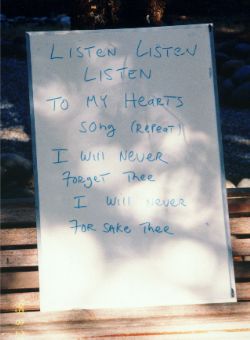 LISTEN LISTEN
LISTEN
TO MY HEARTS
SONG (REPEAT)
I WILL NEVER
FORGET THEE
I WILL NEVER
FORSAKE THEE